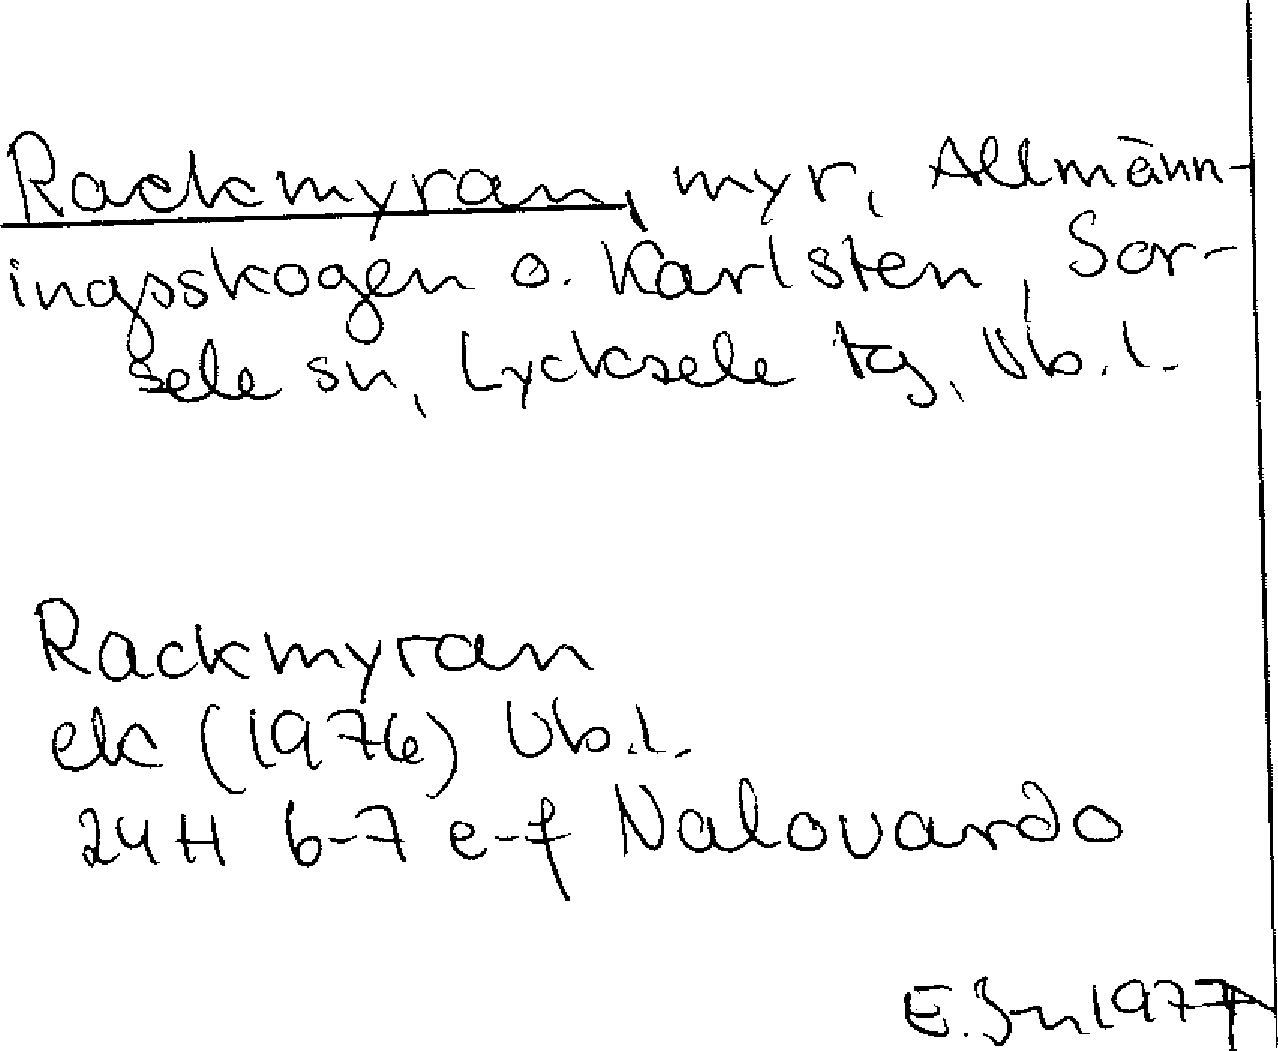 Rackmyran, myr, Allmänn-
ingsskogen o. Karlsten, Sor-
sele sn, Lycksele tg, Vb.l.
Rackmyran
ek (1976) Vb.l.
24H 6-7 e-f Nalovardo
1977